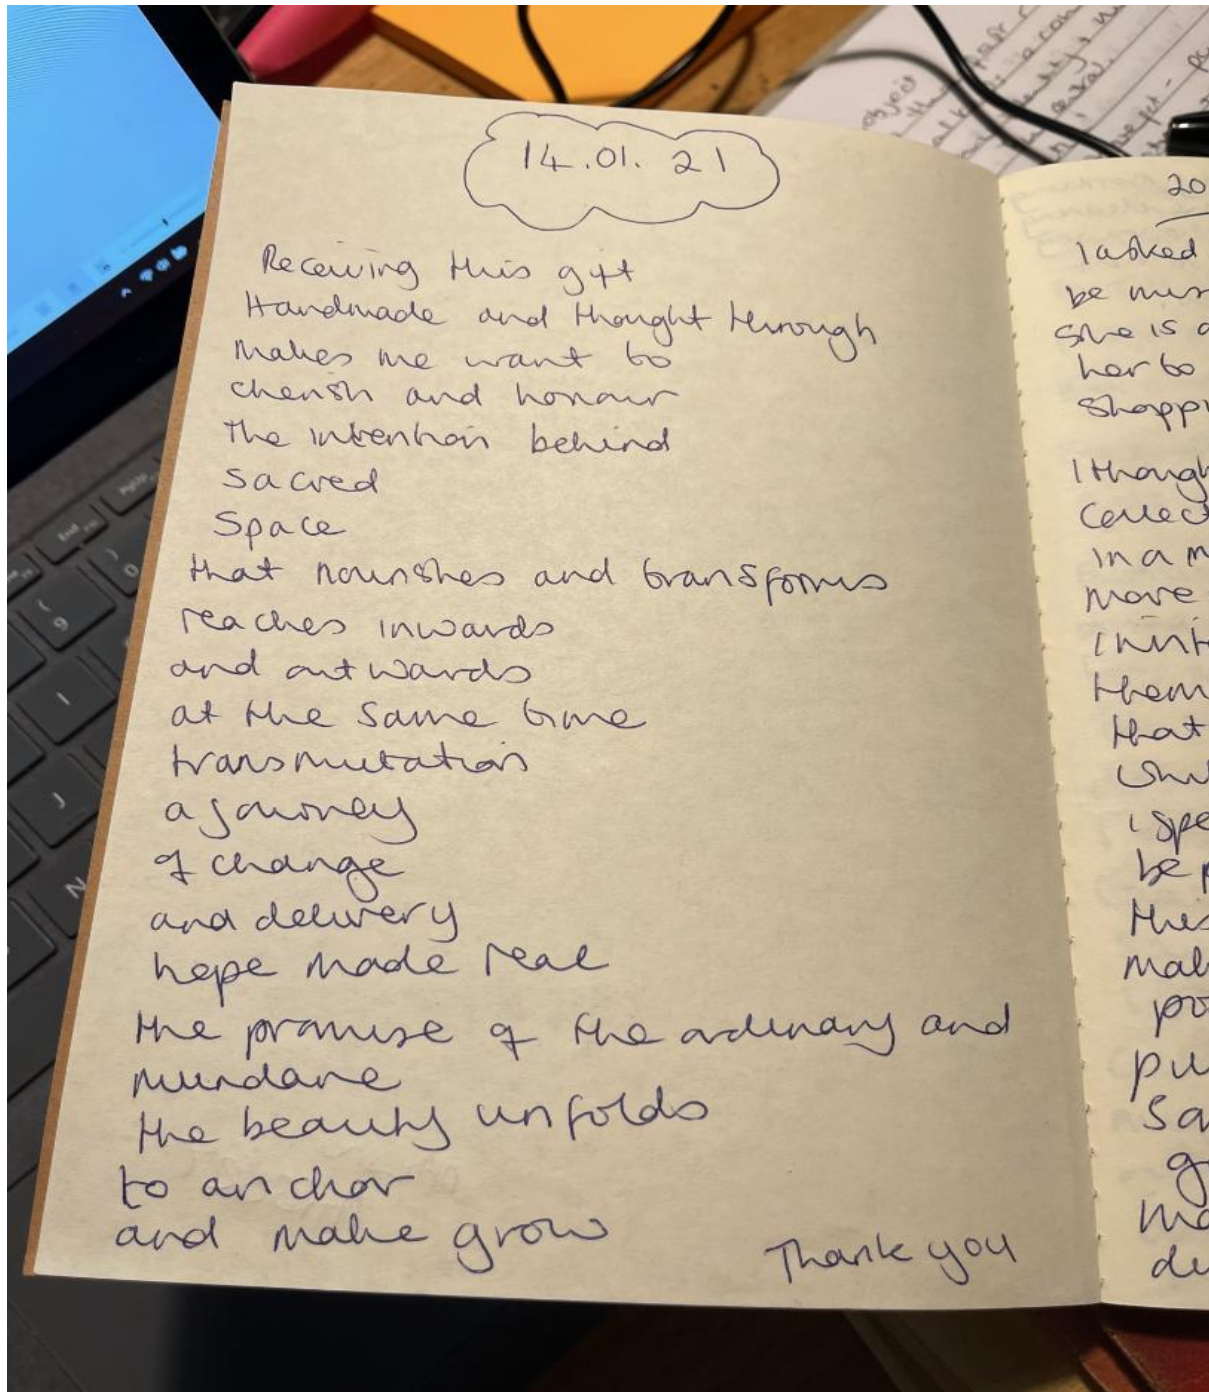 14.01.21
Receiving this gift
Handmade and thought through
makes me want to
cherish and honour
The intention behind
Sacred
Space
that nourishes and transforms
reaches inwards
and outwards
at the same time
transmutation
a journey
of change
and delivery
hope made real
the promise of the ordinary and
mundane
the beauty unfolds
to anchor
and make grow
Thank you
20
I asked
be
she is
her to
Shoppi
I though
Collec
in a m
more
them
that
I spe
be p
this
mak
po
pu
Sa
g
ma
object
central.
End
PgUp
9
0
I
J
N